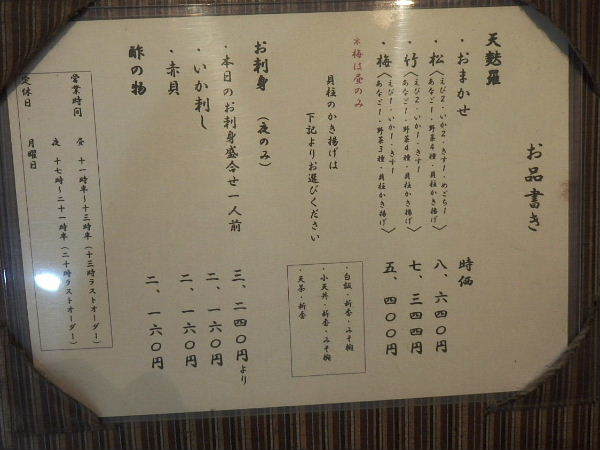 お品書き
天麩羅
・おまかせ 時価
・松〈えび2・いか2・きす1・めごち1 あなご1・野菜4種・貝柱かき揚げ〉 八、六四〇円
・竹〈えび2・いか1・きす1 あなご1・野菜4種・貝柱かき揚げ〉 七、三四四円
・梅〈えび1・いか1・きす1 あなご1・野菜3種・貝柱かき揚げ〉 五、四〇〇円
※梅は昼のみ
貝柱のかき揚げは
下記よりお選びください
・白飯・新香・みそ椀
・小天丼・新香・みそ椀
・天茶・新香
お刺身（夜のみ）
・本日のお刺身盛合せ一人前 三、二四〇円より
・いか刺し 二、一六〇円
・赤貝 二、一六〇円
酢の物 二、一六〇円
営業時間 昼 十一時半～十三時半（十三時ラストオーダー）
夜 十七時～二十一時半（二十時ラストオーダー）
定休日 月曜日